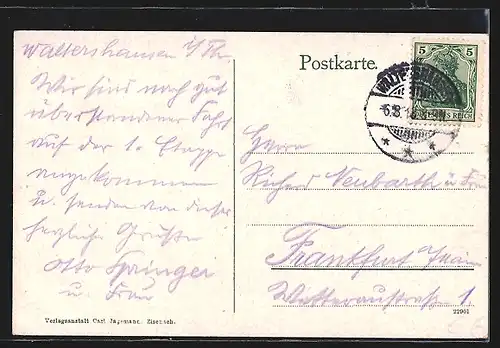 Waltershausen i/Th.
Wir sind nach gut
überstandener Fahrt
auf der 1. Etappe
angekommen
u. senden von dieser
herzliche Grüße
Otto Springer
u. Frau
Verlagsanstalt Carl Jagemann, Eisenach.
Postkarte.
5 5
DEUTSCHES REICH
WALTERSHAUSEN
Herrn
Richard Neubarth u. Frau
Frankfurt Main
Wetteraustraße 1
22901